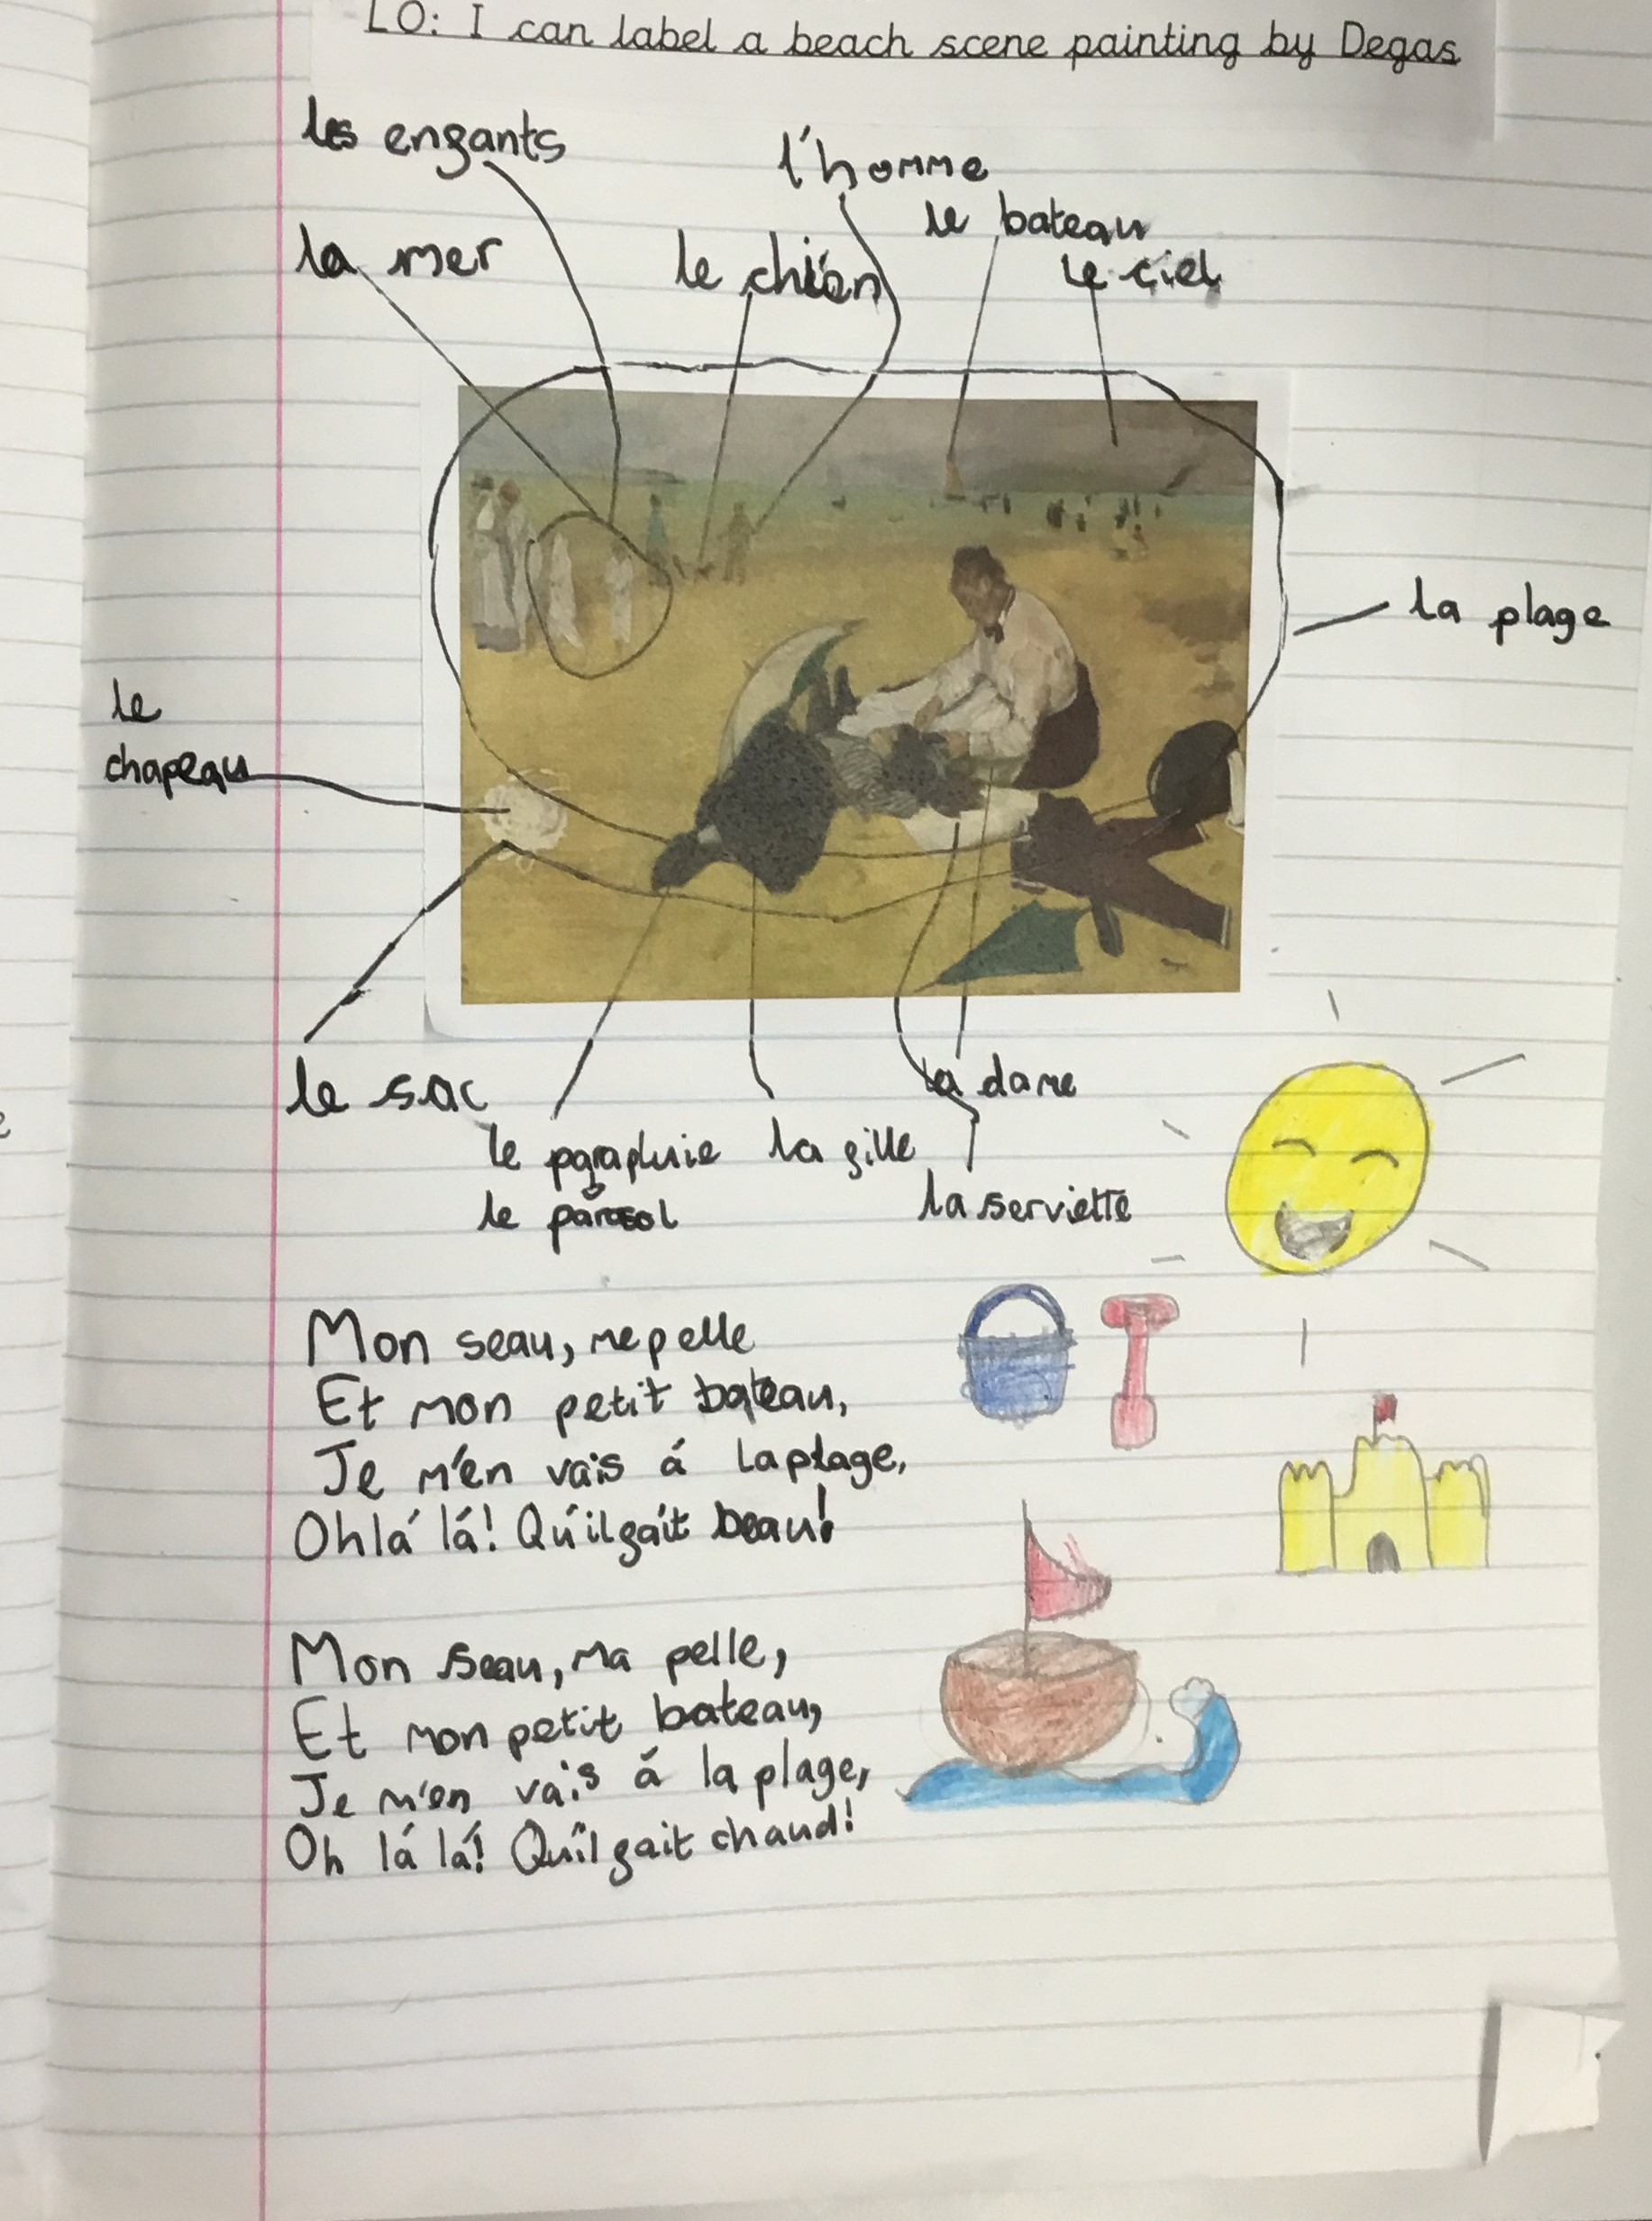 LO: I can label a beach scene painting by Degas
les enfants
l'homme
le bateau
la mer
le chien
le ciel
la plage
le
chapeau
le sac
la dame
le parapluie
la fille
le parasol
la serviette
Mon seau, me pelle
Et mon petit bateau,
Je m'en vais á la plage,
Oh lá lá! Qu'il fait beau!
Mon seau, ma pelle,
Et mon petit bateau,
Je m'en vais á la plage,
Oh lá lá! Qu'il fait chaud!